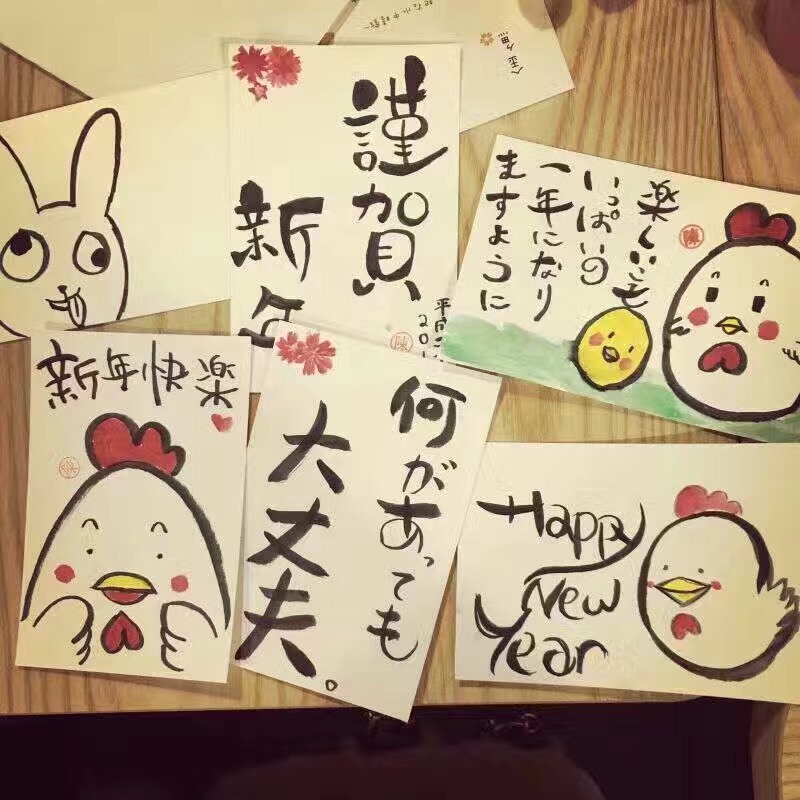 謹賀
新年
平成
201
陳
楽しいこと
いっぱいの
一年になり
ますように
陳
新年快楽
何があっても
大丈夫。
Happy
New
Year